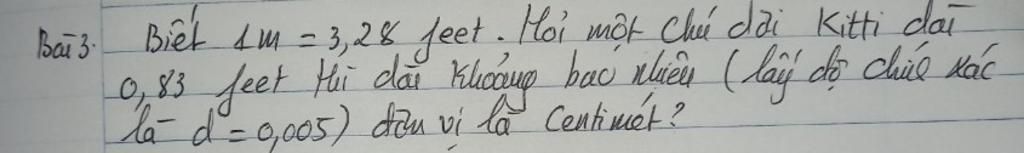 Bài 3. Biết 1m = 3,28 feet. Hỏi một chú dơi Kitti dài
0,83 feet thì dài khoảng bao nhiêu (lấy độ chính xác
là d = 0,005) đơn vị là Centimét?